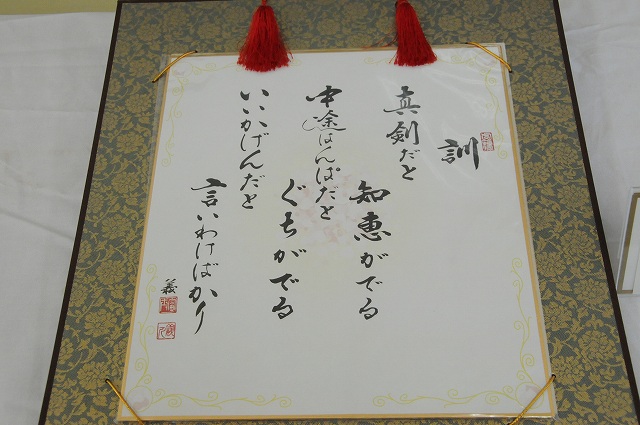 訓
真剣だと
知恵がでる
中途はんぱだと
ぐちがでる
いいかげんだと
言いわけばかり
義